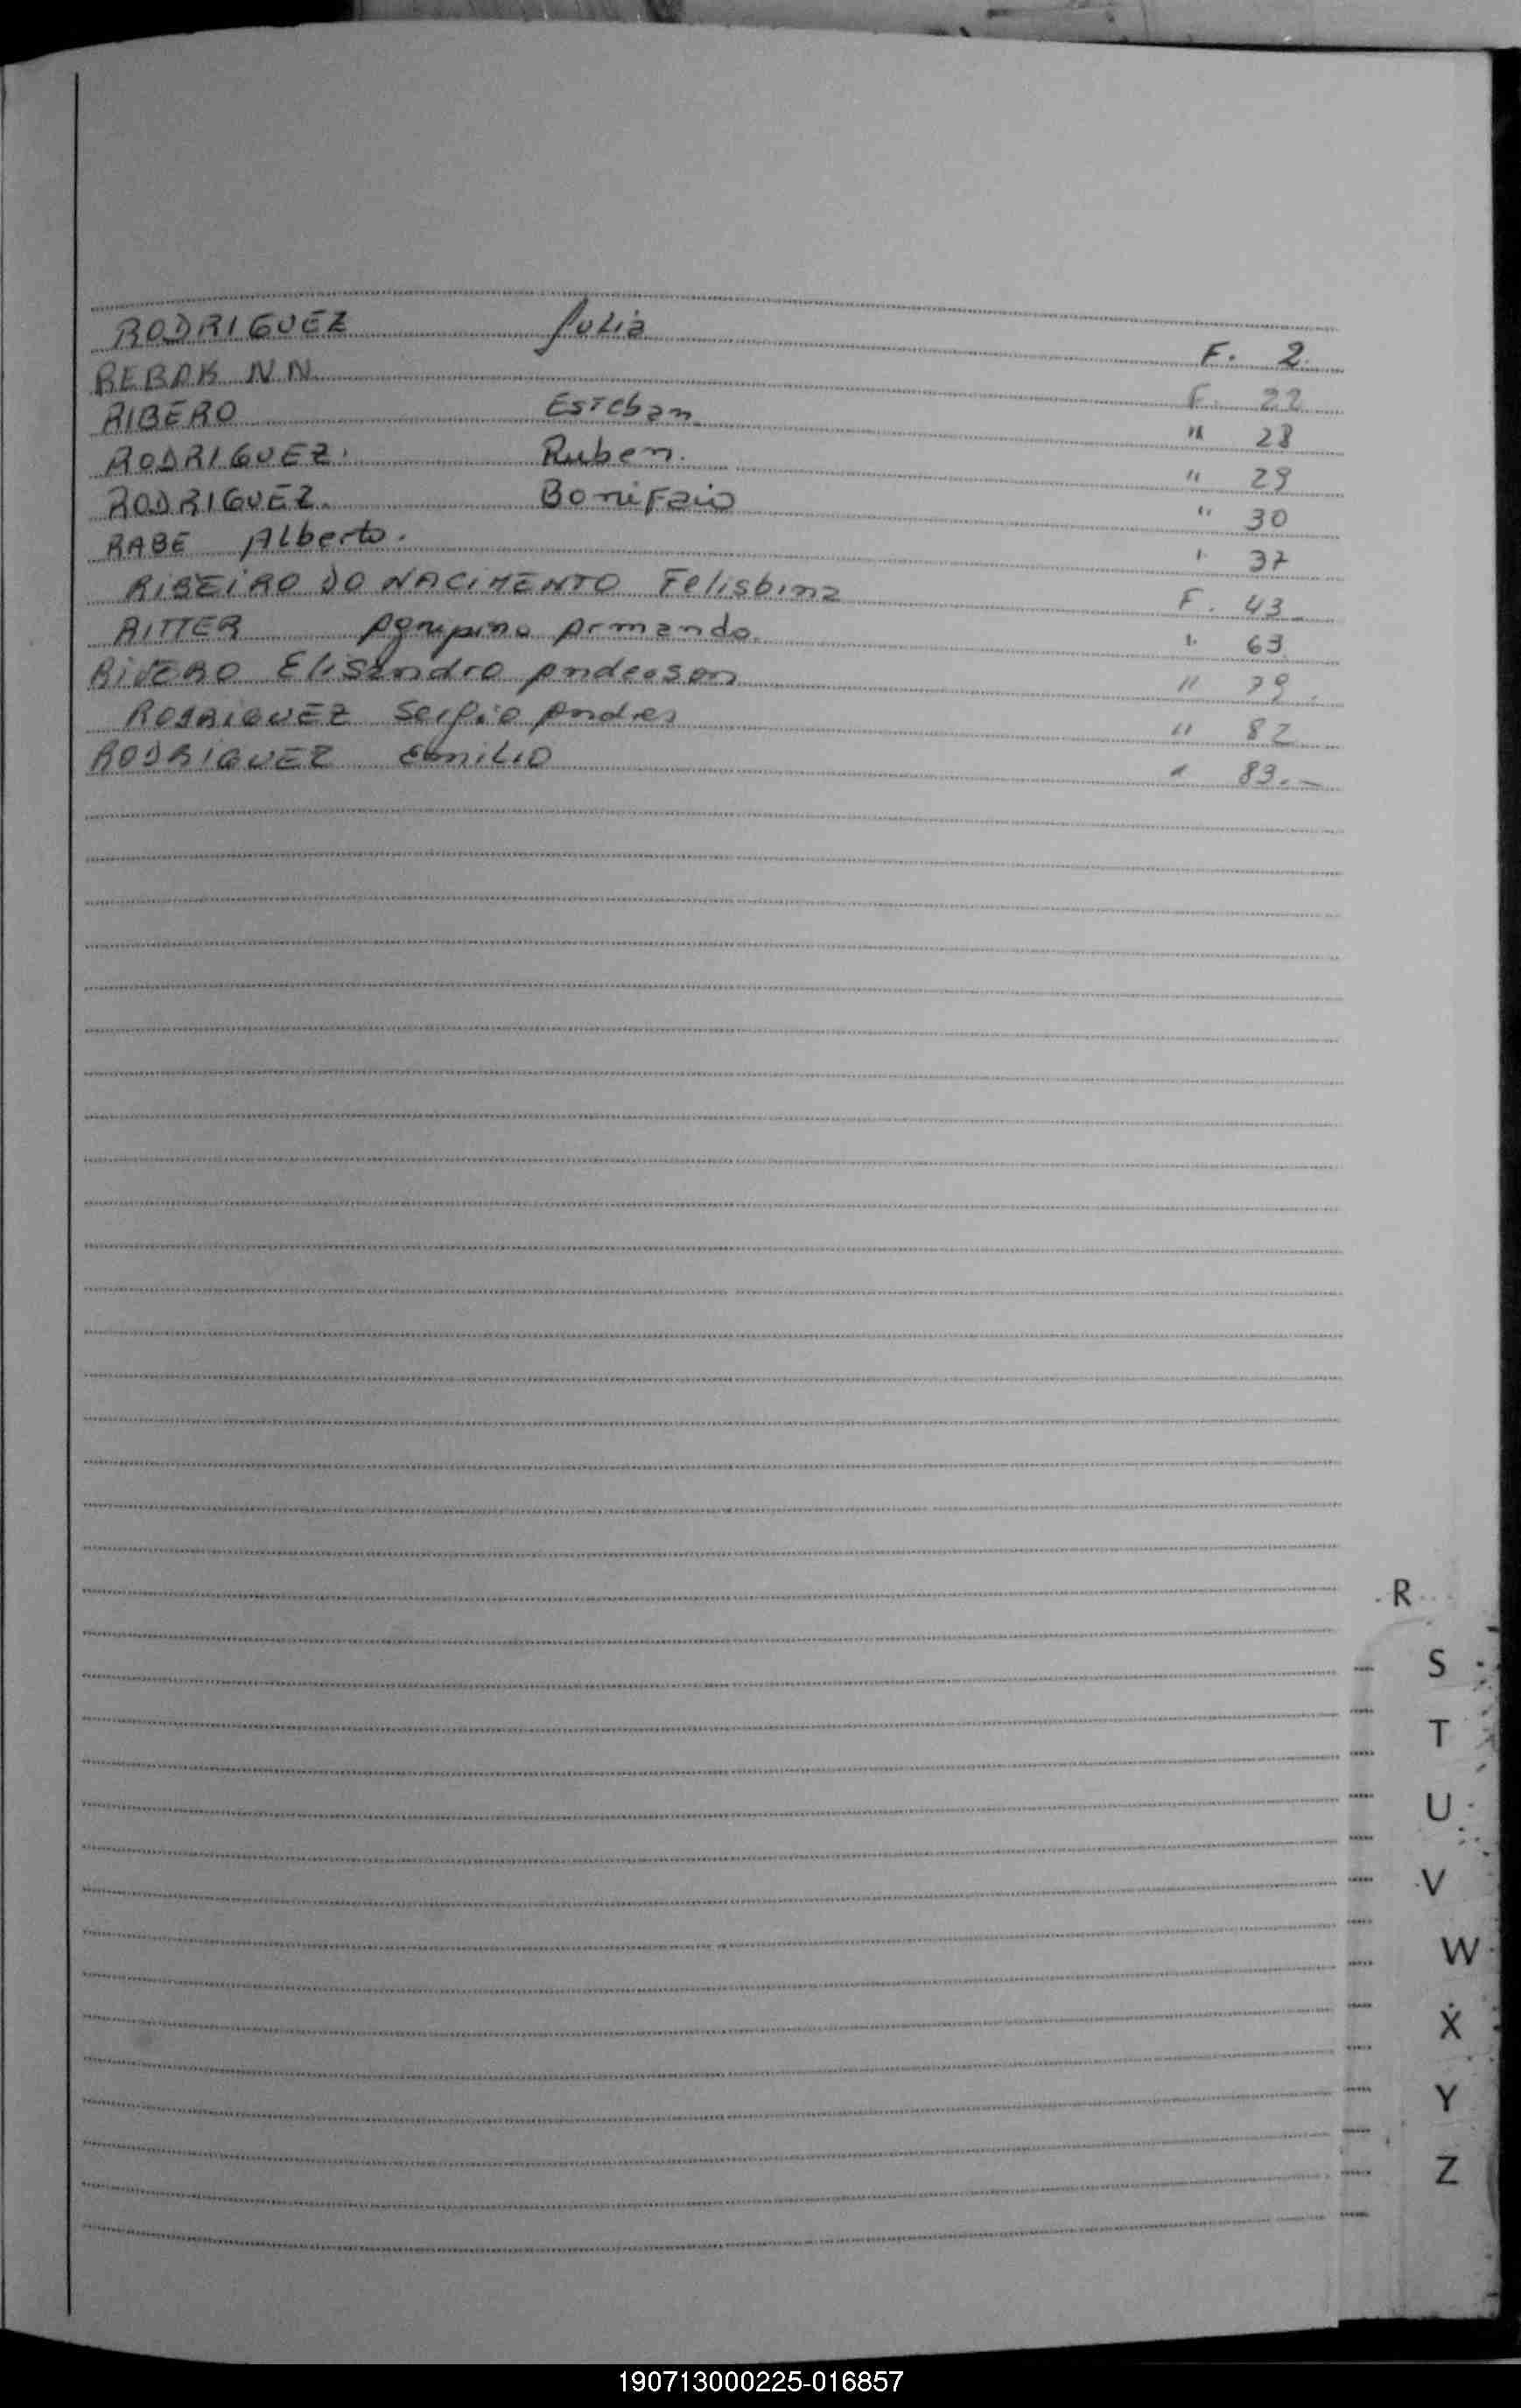 RODRIGUEZ Julia F. 2.
REBAK N N F. 22
RIBERO Esteban " 28
RODRIGUEZ. Ruben. " 29
RODRIGUEZ. Bonifaio " 30
RABE Alberto. " 37
RIBEIRO DO NACIMENTO Felisbina F. 43
RITTER Agrupino Armando. " 63
RIVERO Elisandro Anderson " 79.
RODRIGUEZ Sergio Andres " 82
RODRIGUEZ Emilio " 83.-
R
S
T
U
V
W
X
Y
Z
190713000225-016857